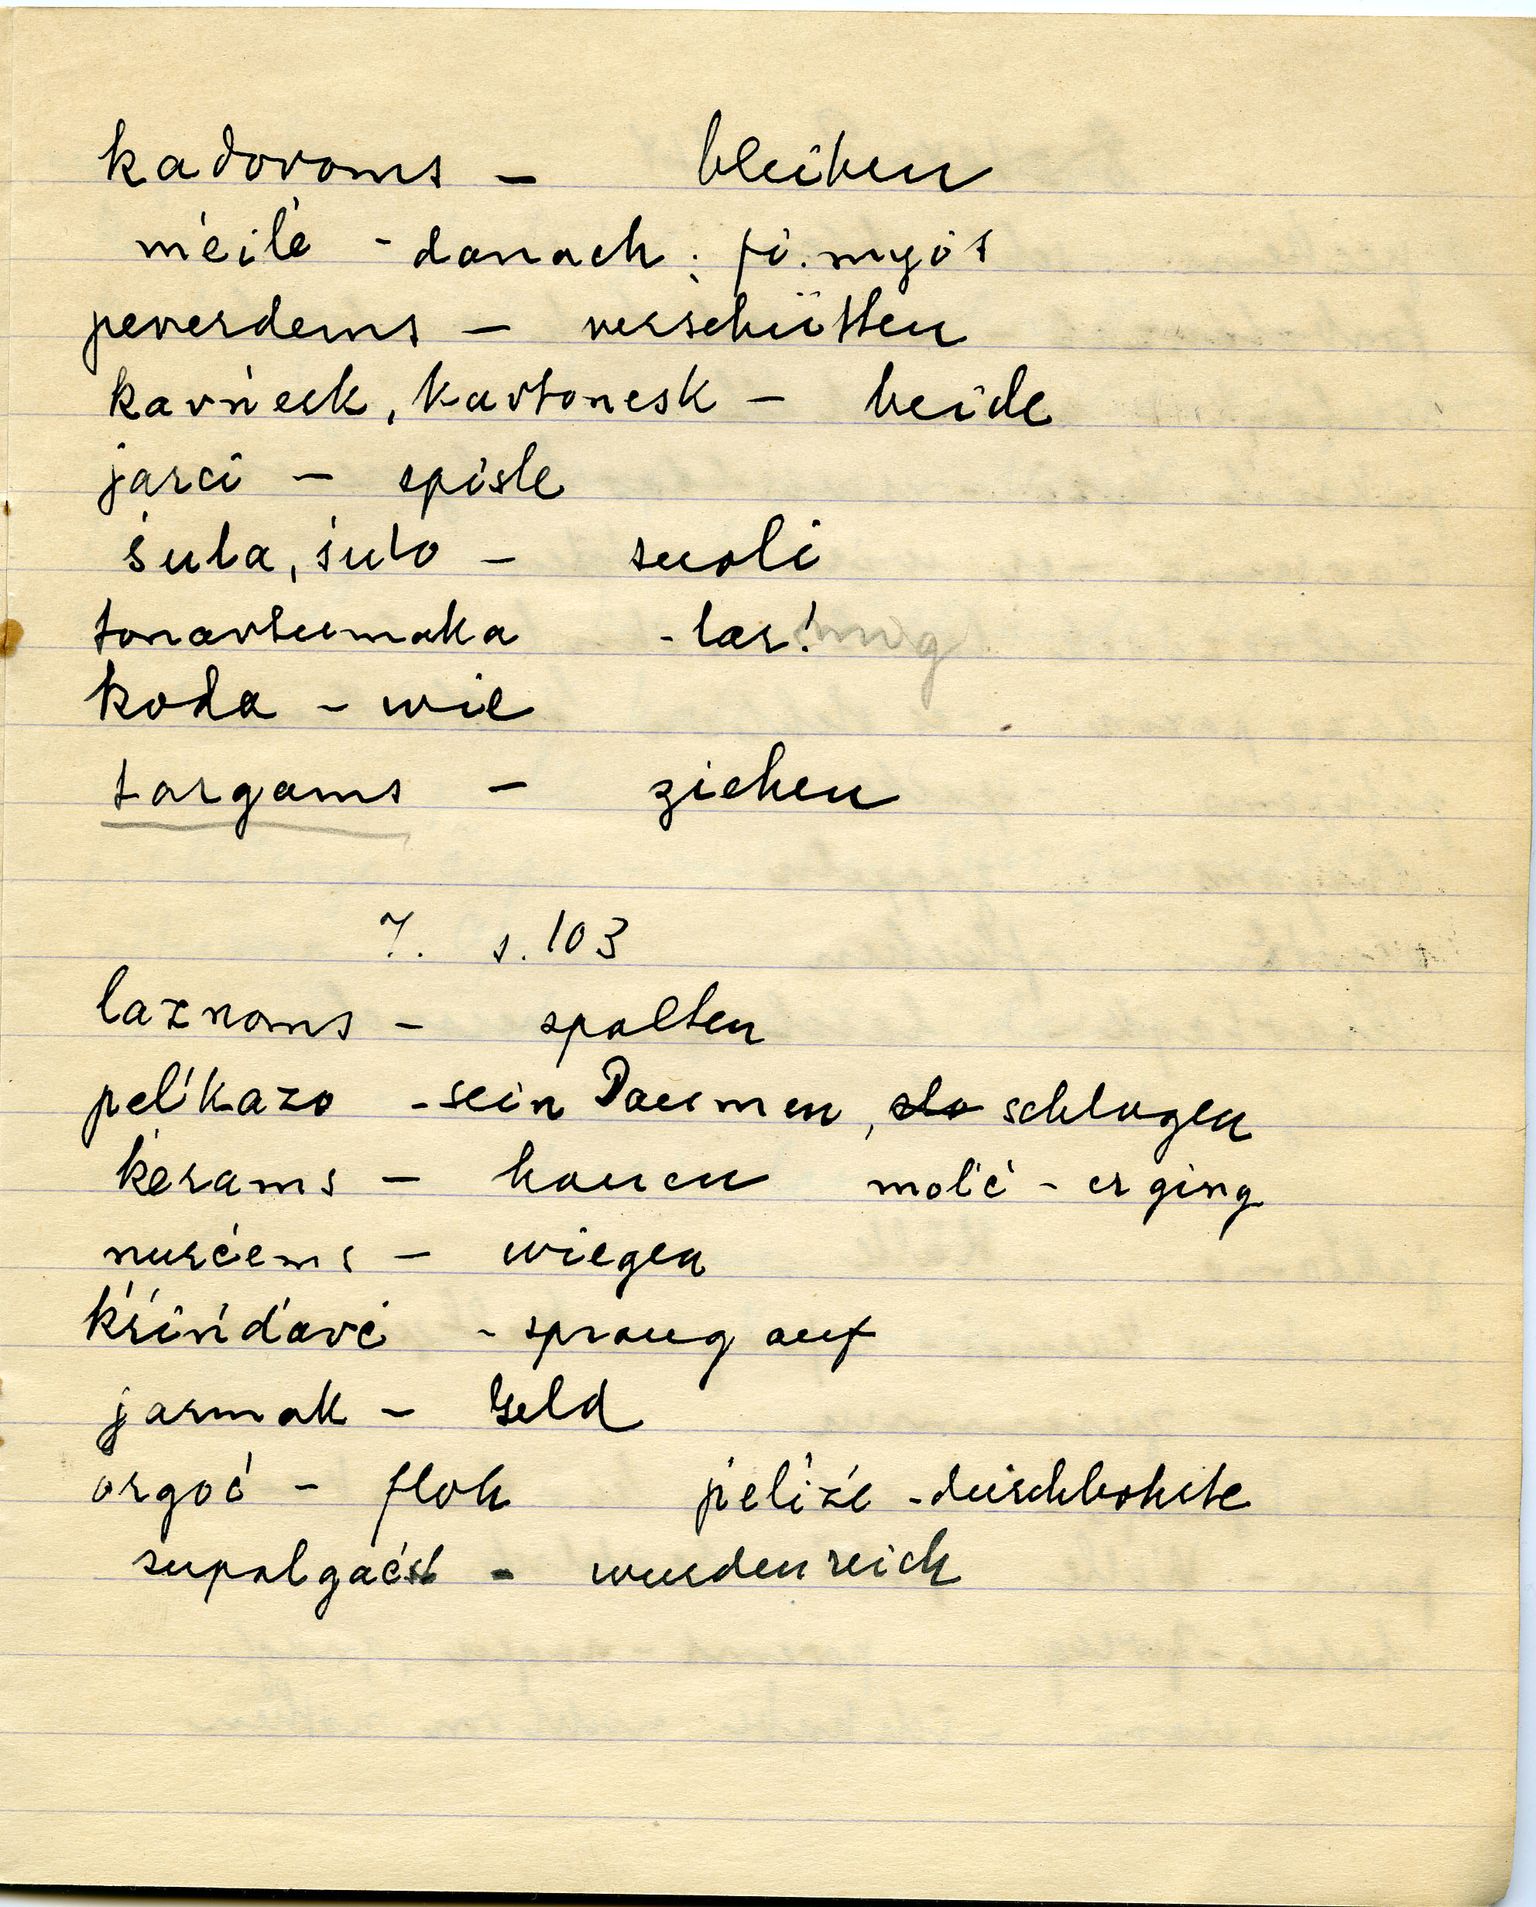 kadovoms – bleiben
ḿeiĺe - danach; fi. myös
peverdems – verschütten
kavńeck, kavtonesk – beide
jarci – spiste
śula, śulo – suoli
tonavtumaka - lær! mig
koda – wie
targams – ziehen
7. s. 103
laznoms – spalten
peĺkazo - sein Daumen, slo schlagen
ḱerams – hauen moĺć - er ging
nurćems – wiegen
ḱŕińd́avć - sprang auf
jarmak – Geld
orgoć – floh ṕeĺiźe - durchbohrte
supalgaćst - wurden reich